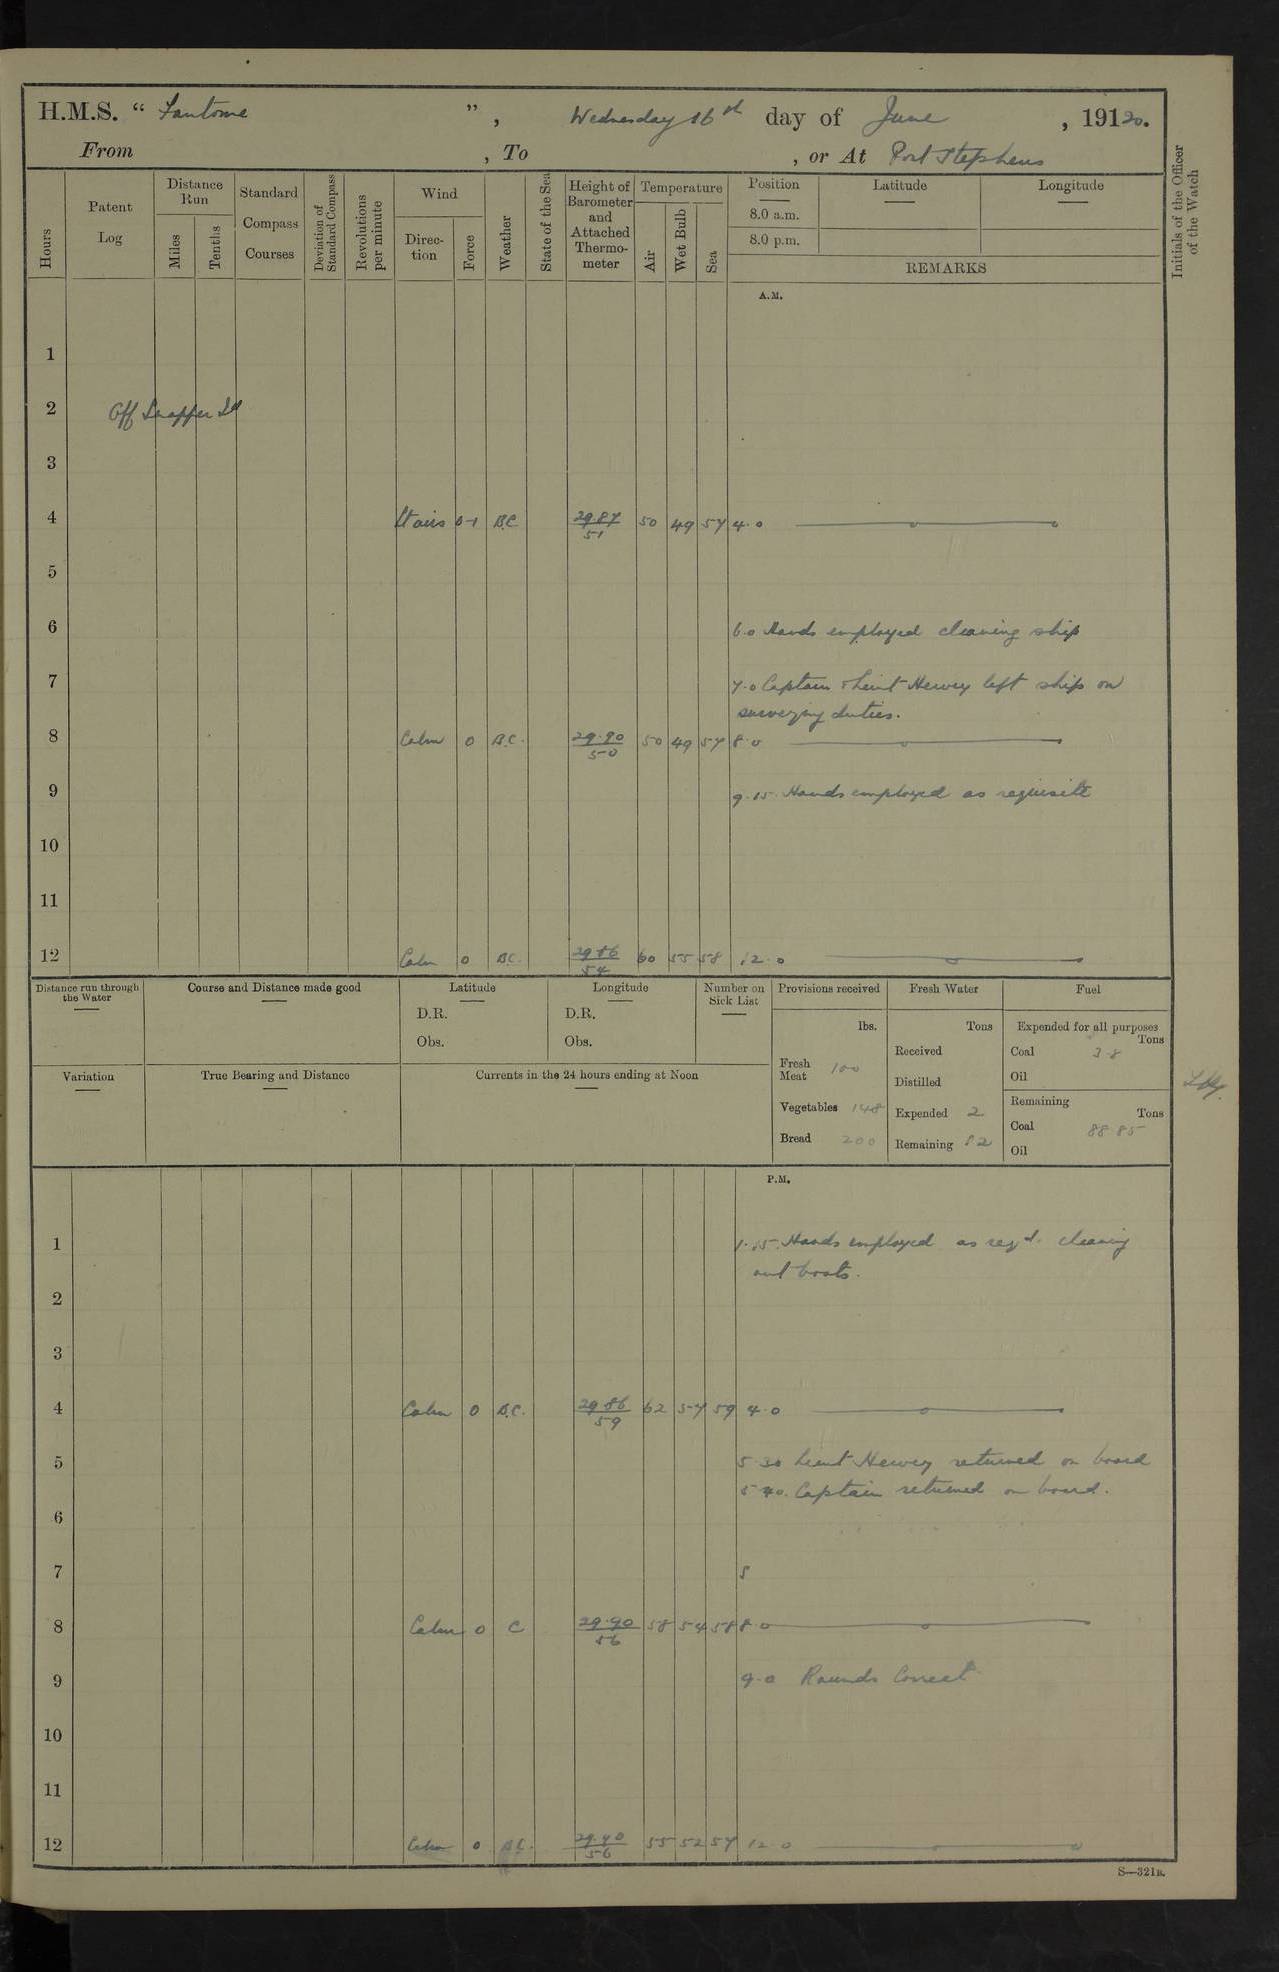 H.M.S. " Fantome ", Wednesday 16th day of June , 19120.
From , To , or At Port Stephens
Hours
Patent Log
Distance Run
Miles
Tenths
Standard Compass Courses
Deviation of Standard Compass
Revolutions per minute
Wind
Direction
Force
Weather
State of the Sea
Height of Barometer and Attached Thermometer
Temperature
Air
Wet Bulb
Sea
Position
8.0 a.m.
8.0 p.m.
Latitude
Longitude
REMARKS
Initials of the Officer of the Watch
A.M.
1
2 Off Snapper Id
3
4 Lt airs 0-1 B.C. 29.87 50 49 57 4.0
51
5
6 6.0 Hands employed cleaning ship
7 7.0 Captain & Lieut Hewey left ship on
surveying duties.
8 Calm 0 B.C. 29.90 50 49 57 8.0
50
9 9.15. Hands employed as requisite
10
11
12 Calm 0 BC. 29.86 60 55 58 12.0
54
Distance run through the Water
Course and Distance made good
Latitude
D.R.
Obs.
Longitude
D.R.
Obs.
Number on Sick List
Provisions received
lbs.
Fresh Meat 100
Vegetables 148
Bread 200
Fresh Water
Tons
Received
Distilled
Expended 2
Remaining 82
Fuel
Expended for all purposes
Tons
Coal 3.8
Oil
Remaining
Tons
Coal 88.85
Oil
Variation
True Bearing and Distance
Currents in the 24 hours ending at Noon
P.M.
1 1.15. Hands employed as reqd. cleaning
out boats.
2
3
4 Calm 0 B.C. 29.86 62 57 59 4.0
59
5 5.30 Lieut Hewey returned on board
5.40. Captain returned on board.
6
7
8 Calm 0 C 29.90 58 54 58 8.0
56
9 9.0 Rounds Correct
10
11
12 Calm 0 B.C. 29.90 55 52 57 12.0
56
S—321B.